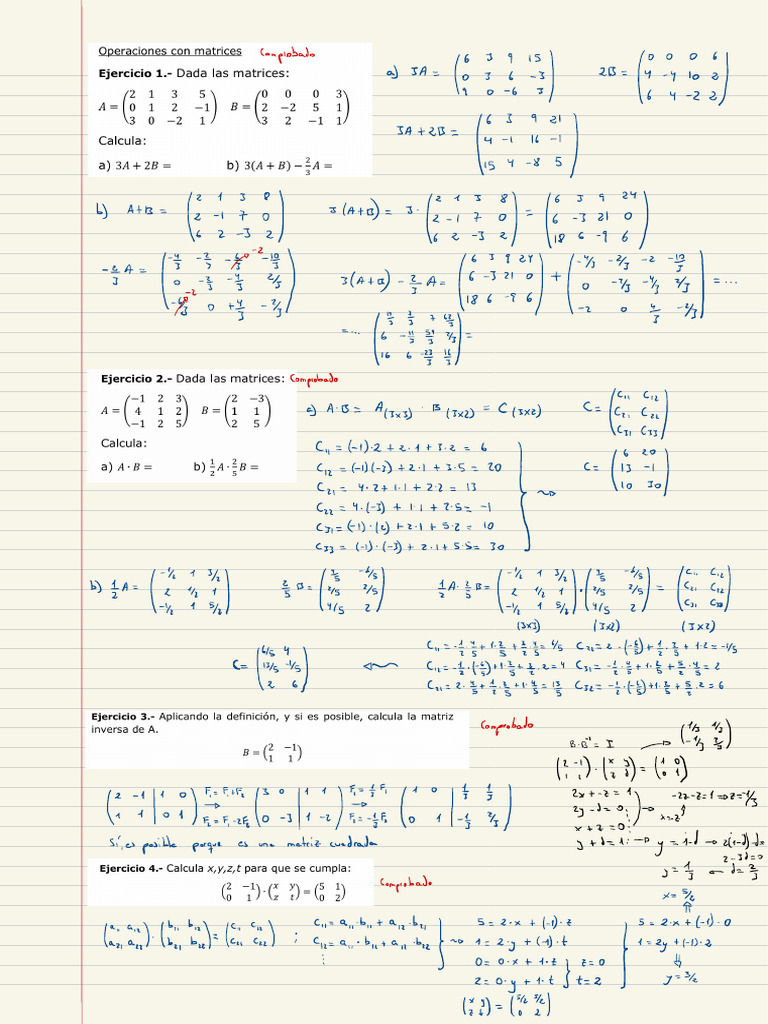 Operaciones con matrices Comprobado
Ejercicio 1.- Dada las matrices:
A = (2 1 3 5; 0 1 2 −1; 3 0 −2 1) B = (0 0 0 3; 2 −2 5 1; 3 2 −1 1)
Calcula:
a) 3A + 2B = b) 3(A + B) − 2/3 A =
a) 3A = (6 3 9 15; 0 3 6 -3; 9 0 -6 3) 2B = (0 0 0 6; 4 -4 10 2; 6 4 -2 2)
3A + 2B = (6 3 9 21; 4 -1 16 -1; 15 4 -8 5)
b) A+B = (2 1 3 8; 2 -1 7 0; 6 2 -3 2) 3(A+B) = 3· (2 1 3 8; 2 -1 7 0; 6 2 -3 2) = (6 3 9 24; 6 -3 21 0; 18 6 -9 6)
-2/3 A = (-4/3 -2/3 -6/3 -2 -10/3; 0 -2/3 -4/3 2/3; -6/3 -2 0 +4/3 -2/3) 3(A+B) - 2/3 A = (6 3 9 24; 6 -3 21 0; 18 6 -9 6) + (-4/3 -2/3 -2 -10/3; 0 -2/3 -4/3 2/3; -2 0 4/3 -2/3) = ...
=... 6 -11/3 59/3 2/3; 16 6 -23/3 16/3) =
Ejercicio 2.- Dada las matrices: Comprobado
A = (−1 2 3; 4 1 2; −1 2 5) B = (2 −3; 1 1; 2 5)
Calcula:
a) A · B = b) 1/2 A · 2/5 B =
a) A·B = A (3x3) · B (3x2) = C (3x2) C = (C11 C12; C21 C22; C31 C33)
C11 = (-1)·2 + 2·1 + 3·2 = 6
C12 = (-1)(-3) + 2·1 + 3·5 = 20
C21 = 4·2 + 1·1 + 2·2 = 13
C22 = 4·(-3) + 1·1 + 2·5 = -1
C31 = (-1)·(2) + 2·1 + 5·2 = 10
C33 = (-1)·(-3) + 2·1 + 5·5 = 30
C = (6 20; 13 -1; 10 30)
b) 1/2 A = (-1/2 1 3/2; 2 1/2 1; -1/2 1 5/2) 2/5 B = -6/5; 2/5 2/5; 4/5 2) 1/2 A · 2/5 B = (-1/2 1 3/2; 2 1/2 1; -1/2 1 5/2) · -6/5; 2/5 2/5; 4/5 2) = (C11 C12; C21 C22; C31
(3x3) (3x2) (3x2)
C = (6/5 4; 13/5 -1/5; 2 6)
C11 = -1/2·4/5 + 1·2/5 + 3/2·4/5 = 6/5 C22 = 2·(-6/5) + 1/2·2/5 + 1·2 = -1/5
C12 = -1/2·(-6/5) + 1·2/5 + 3/2·2 = 4 C31 = -1/2·4/5 + 1·2/5 + 5/2·4/5 = 2
C21 = 2·4/5 + 1/2·2/5 + 1·4/5 = 13/5 C32 = -1/2·(-6/5) + 1·2/5 + 5/2·2 = 6
Ejercicio 3.- Aplicando la definición, y si es posible, calcula la matriz
inversa de A.
Comprobado
B = (2 −1; 1 1)
(2 -1 | 1 0; 1 1 | 0 1) F1 = F1+F2 → F2 = F1-2F2 (3 0 | 1 1; 0 -3 | 1 -2) F1 = 1/3 F1 → F2 = -1/3 F2 (1 0 | 1/3 1/3; 0 1 | -1/3 2/3)
Sí, es posible porque es una matriz cuadrada
B·B⁻¹ = I → (1/3 1/3; -1/3 2/3)
(2 -1; 1 1) · (x y; z d) = (1 0; 0 1)
2x + -z = 1
2y - d = 0
x + z = 0
y + d = 1
-2z - z = 1 → z = -1/3
x = -z
y = 1-d → 2(1-d) - d =
2 - 3d = 0
y = 1/3 ← d = 2/3
Ejercicio 4.- Calcula x,y,z,t para que se cumpla:
(2 −1; 0 1) · (x y; z t) = (5 1; 0 2)
Comprobado
(a11 a12; a21 a22) · (b11 b12; b21 b22) = (c11 c12; c21 c22) ; C11 = a11·b11 + a12·b21
C12 = a11·b11 + a12·b22
⋮
5 = 2·x + (-1)·z
1 = 2·y + (-1)·t
0 = 0·x + 1·t z = 0
2 = 0·y + 1·t t = 2
(x y; z t) = (5/2 3/2; 0 2)
x = 5/2
5 = 2·x + (-1)·0
1 = 2y + (-1)·2
y = 3/2